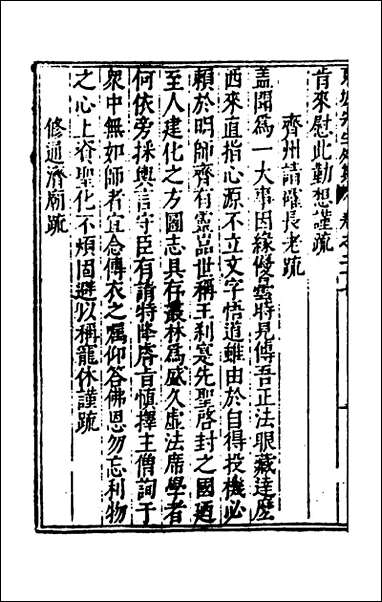 肯來慰此勤想謹疏
齊州請確長老疏
蓋聞為一大事因緣優曇時見傳吾正法眼藏達磨
西來直指心源不立文字悟道雖由於自得投機必
賴於明師齊有靈嵓世稱王刹寔先聖啓封之國廼
至人建化之方圖志具存叢林為盛久虛法席學者
何依旁採輿言守臣有請特降睿旨慎擇主僧詢于
衆中無如師者宜念傳衣之囑仰荅佛恩勿忘利物
之心上資聖化不煩固避以稱寵休謹疏
修通濟廟疏